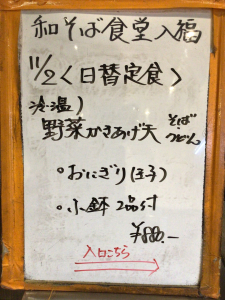 和そば食堂入福
11/2〈日替定食〉
冷・温)
野菜かきあげ天 そば・うどん
。おにぎり(玉子)
。小鉢 2品付
入口こちら